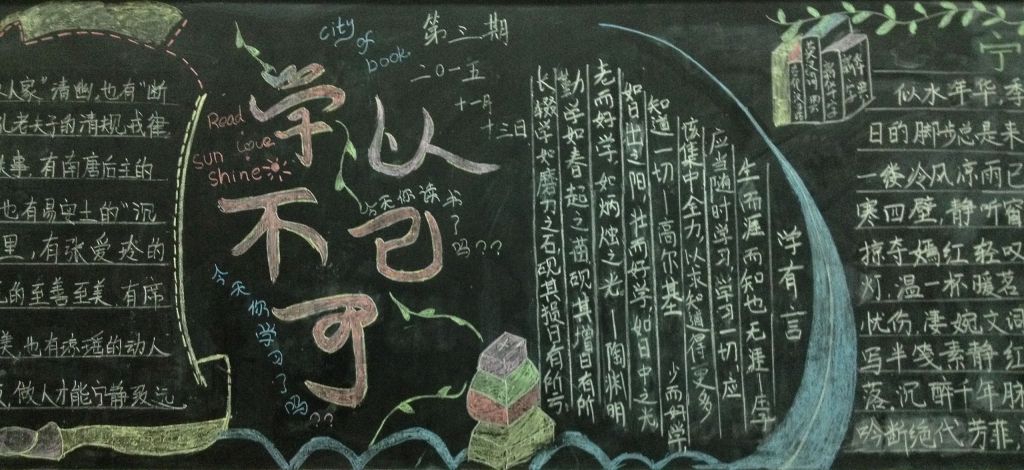 人家"清幽,也有"断
孔老夫子的清规戒律
故事,有南唐后主的
也有易安士的"沉
里,有张爱玲的
的至善至美,有席
美,也有琼瑶的动人
做人才能宁静致远
city
of
book
第三期
二〇一五
十一月
十三日
Read
sun love
shine
学不可
以已
今天你读书了吗???
今天你学习了吗??
学有言
生有涯而知也无涯—庄子
应当随时学习,学习一切,应
该集中全力,以求知道得更多
知道一切.—高尔基
少而好学
如日出之阳,壮而好学,如日中之光
老而好学,如炳烛之光—陶渊明
勤学如春起之苗砚其增日有所
长辍学如磨刀之石,砚其损日有所亏
宁
似水年华,季
日的脚步总是来
一缕冷风凉雨已
寒四壁,静听窗
掠夺嫣红,轻叹
灯,温一杯暖茗
忧伤,凄婉文间
写半笺素静红
落,沉醉千年脉
吟断绝代芳菲,